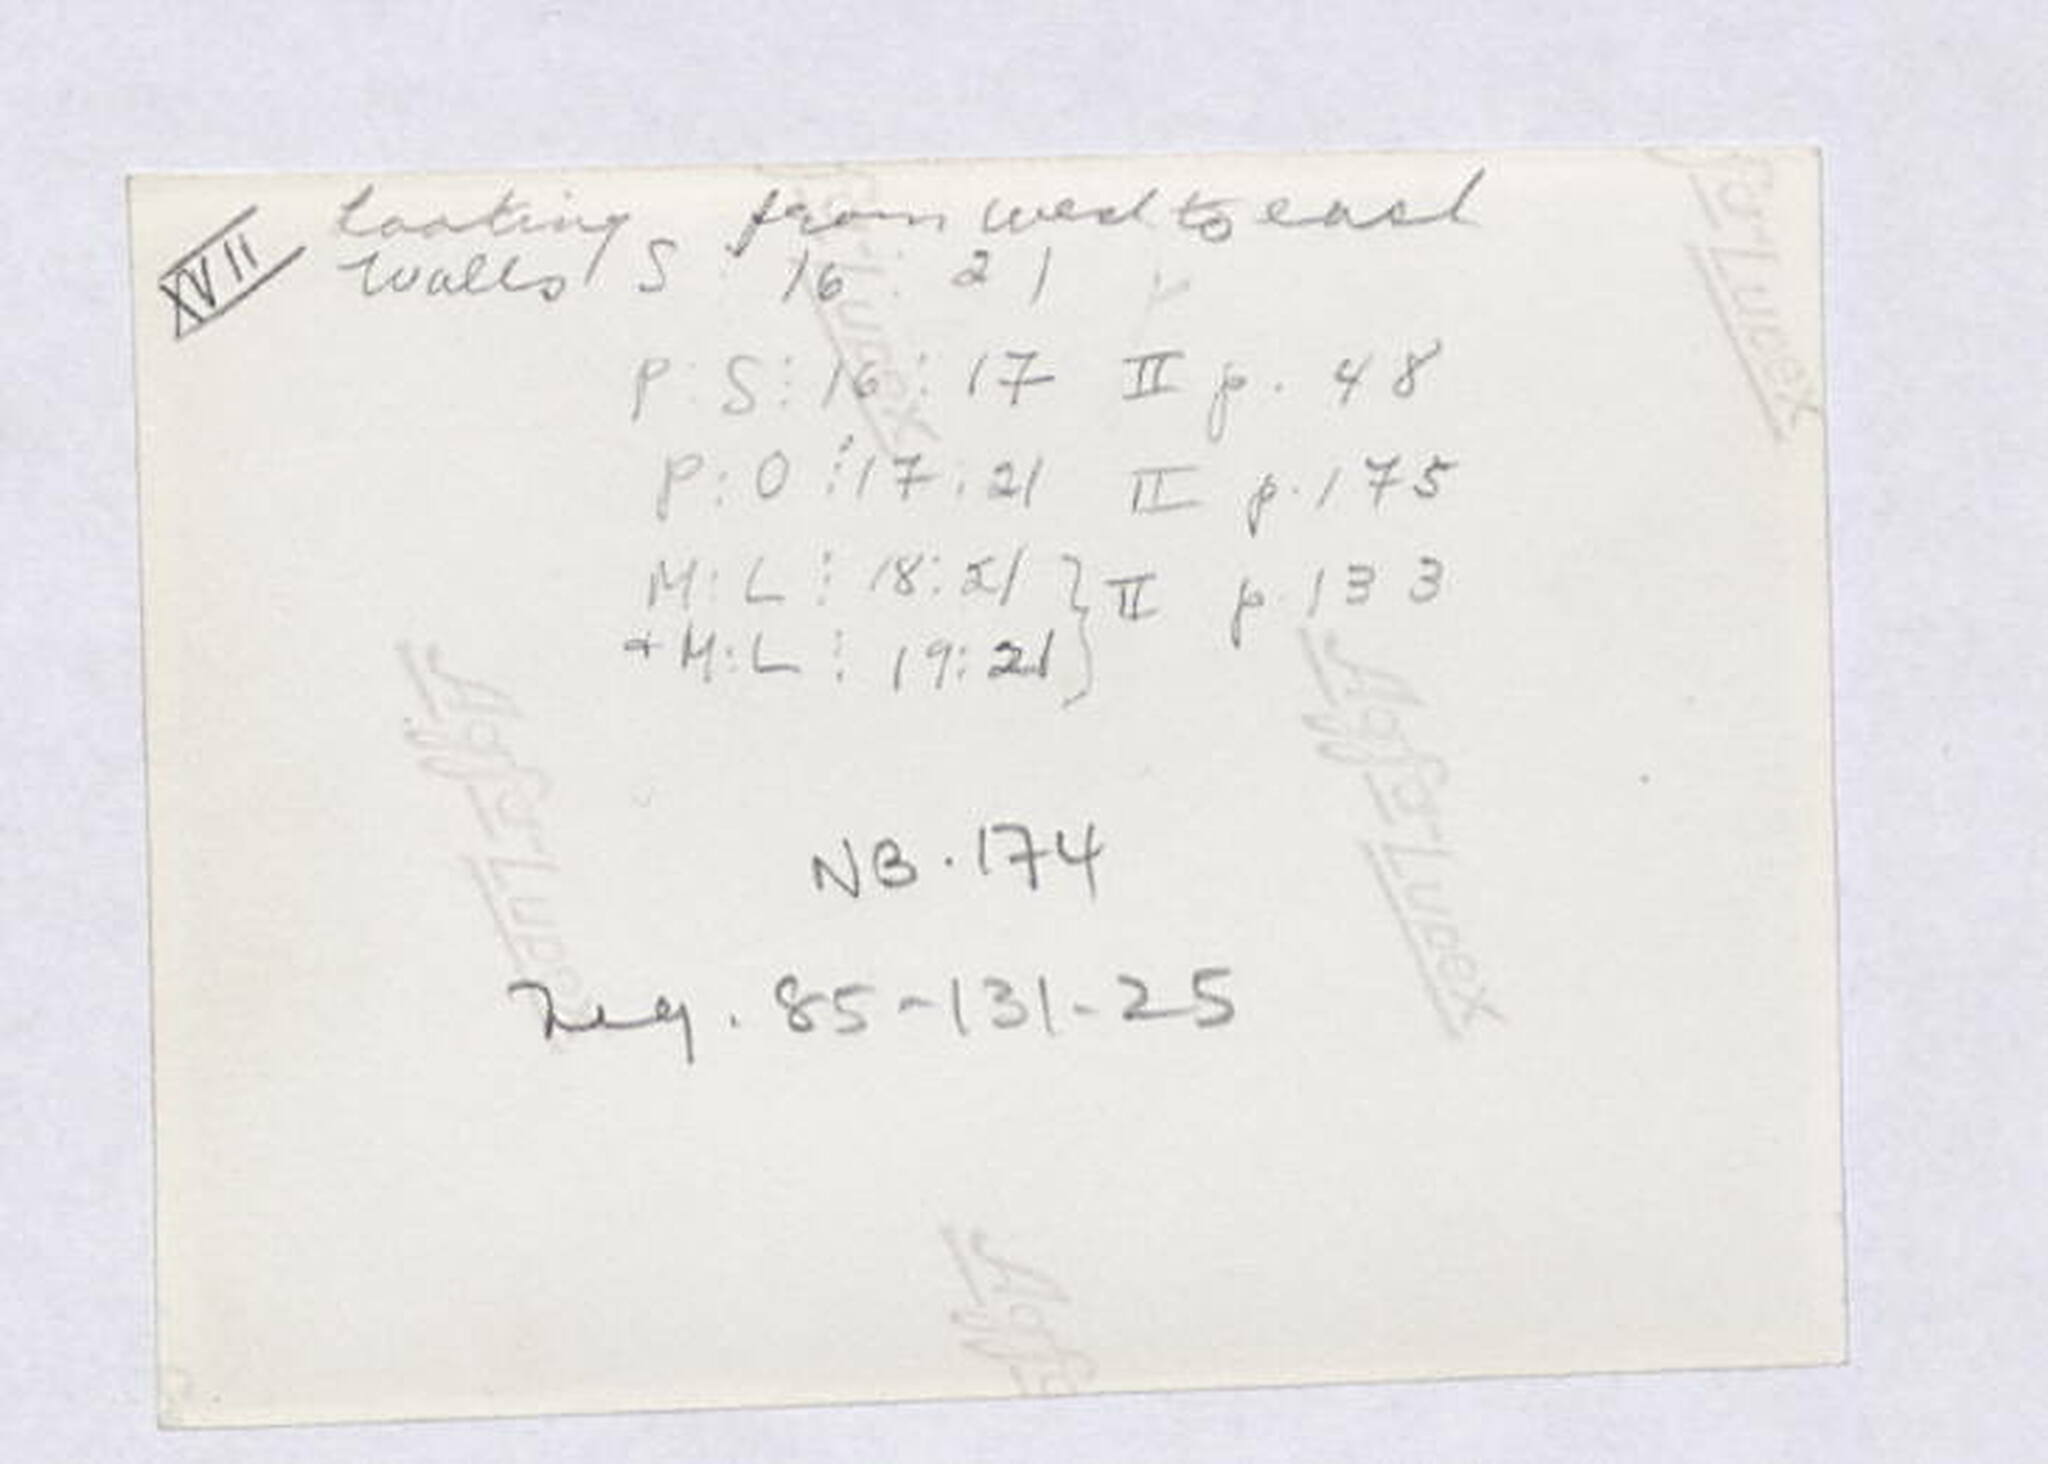 XVII looking from west to east
walls S : 16 : 21
P : S : 16 : 17 II p. 48
P : O : 17 : 21 II p. 175
M : L : 18 : 21 } II p. 133
+ M : L : 19 : 21
NB. 174
Neg. 85-131-25
Agfa-Lupex
Agfa-Lupex
Agfa-Lupex
Agfa-Lupex
Agfa